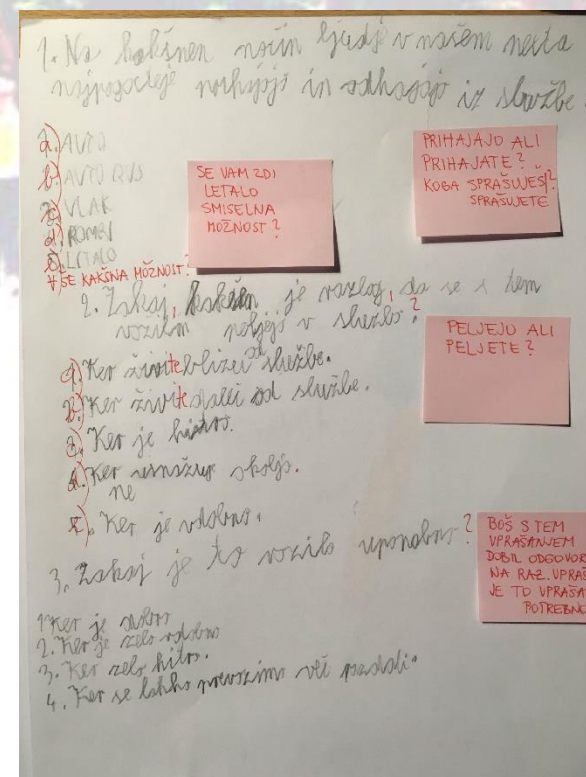 1. Na kakšnen način ljudje v našem mesta
najpogosteje in odhajajo iz službe.
a) AVTO
b) AVTO BUS
c) VLAK
d) KOMBI
LETALO
f) ŠE KAKŠNA MOŽNOST?
SE VAM ZDI
LETALO
SMISELNA
MOŽNOST?
PRIHAJAJO ALI
PRIHAJATE?
KOGA SPRAŠUJEŠ?
SPRAŠUJETE
2. Zakaj, kakšen je razlog, da se s tem
vozilom peljejo v službo?
PELJEJO ALI
PELJETE?
a) Ker živite blizu od službe.
b) Ker živite daleč od službe.
Ker je hitro.
d) Ker okolje.
ne
Ker je udobno.
3. Zakaj je to vozilo uporabno?
BOŠ S TEM
VPRAŠANJEM
DOBIL ODGOVOR
NA RAZ. VPRAŠ
JE TO VPRAŠA
POTREBNO
1 Ker je
2. Ker je zelo udobno
3. Ker zelo hitro.
4. Ker se lahko prevozimo več